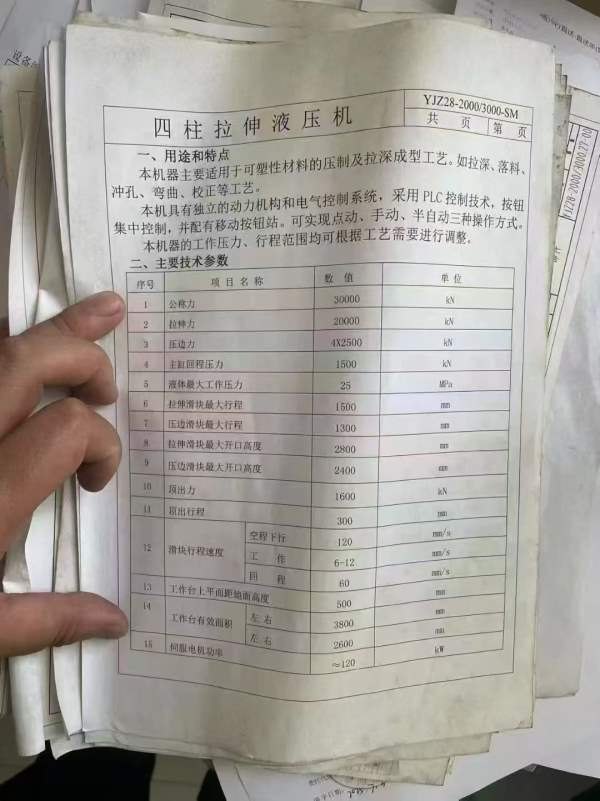 四柱拉伸液压机
YJZ28-2000/3000-SM
共 页 第 页
一、用途和特点
本机器主要适用于可塑性材料的压制及拉深成型工艺。如拉深、落料、
冲孔、弯曲、校正等工艺。
本机具有独立的动力机构和电气控制系统，采用 PLC 控制技术，按钮
集中控制，并配有移动按钮站。可实现点动、手动、半自动三种操作方式。
本机器的工作压力、行程范围均可根据工艺需要进行调整。
二、主要技术参数
序号 项目名称 数值 单位
1 公称力 30000 kN
2 拉伸力 20000 kN
3 压边力 4X2500 kN
4 主缸回程压力 1500 kN
5 液体最大工作压力 25 MPa
6 拉伸滑块最大行程 1500 mm
7 压边滑块最大行程 1300 mm
8 拉伸滑块最大开口高度 2800 mm
9 压边滑块最大开口高度 2400 mm
10 顶出力 1600 kN
11 顶出行程 300 mm
12 滑块行程速度 空程下行 120 mm/s
工作 6-12 mm/s
回程 60 mm/s
13 工作台上平面距地面高度 500 mm
14 工作台有效面积 左右 3800 mm
左右 2600 mm
15 伺服电机功率 ≈120 kW